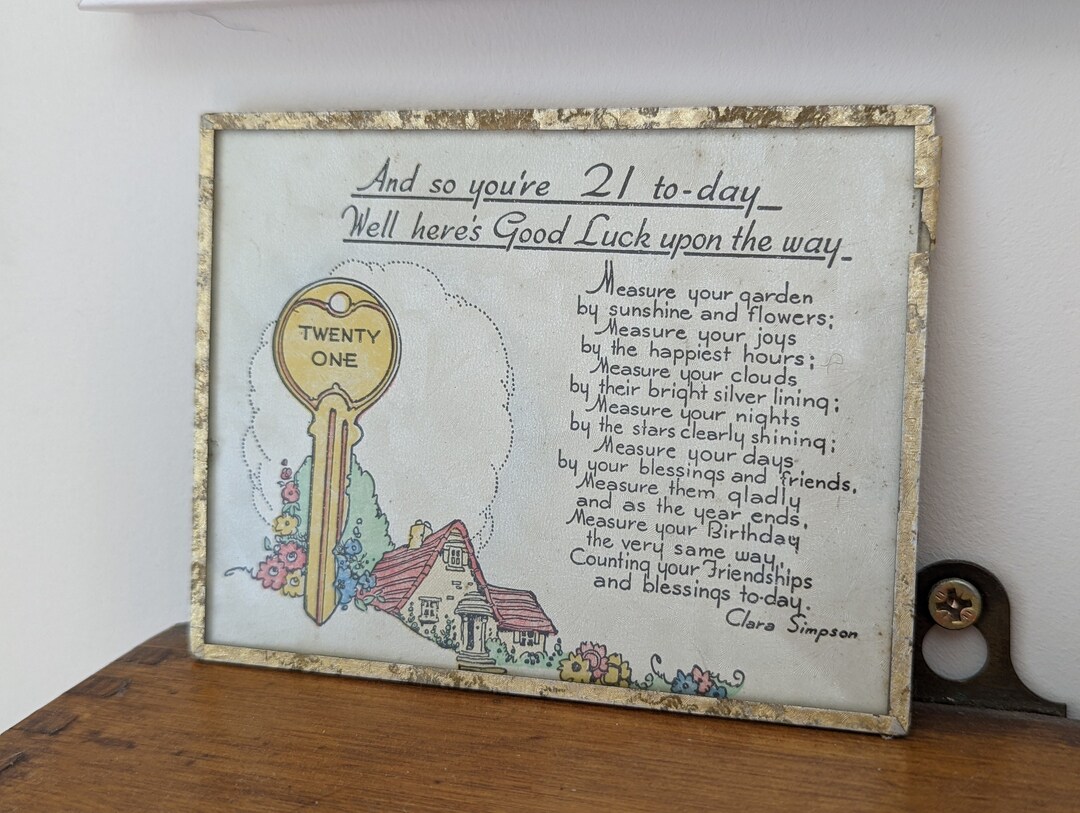 And so you're 21 to-day_
Well here's Good Luck upon the way_
TWENTY
ONE
Measure your garden
by sunshine and flowers;
Measure your joys
by the happiest hours;
Measure your clouds
by their bright silver lining;
Measure your nights
by the stars clearly shining;
Measure your days
by your blessings and friends,
Measure them gladly
and as the year ends,
Measure your Birthday
the very same way,
Counting your Friendships
and blessings to-day.
Clara Simpson